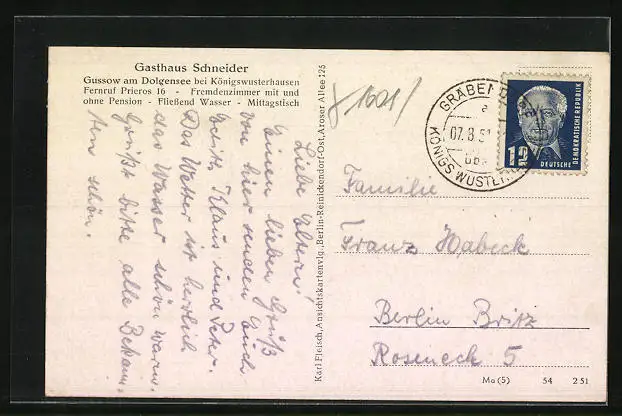 Gasthaus Schneider
Gussow am Dolgensee bei Königswusterhausen
Fernruf Prieros 16 - Fremdenzimmer mit und
ohne Pension - Fließend Wasser - Mittagstisch
Liebe Eltern!
Einen lieben Gruß
von hier senden Euch
Klaus und Peter.
Das Wetter ist herrlich
das Wasser schön warm.
Grüßt bitte alle Bekann-
ten schön.
Karl Fleisch, Ansichtskartenvlg., Berlin-Reinickendorf-Ost, Aroser Allee 125
1601
GRÄBEN
a
07.8.51
KÖNIGS WUSTER
12 DEUTSCHE
DEMOKRATISCHE REPUBLIK
Familie
Franz Habeck
Berlin Britz
Roseneck 5
Ma (5) 54 2 51